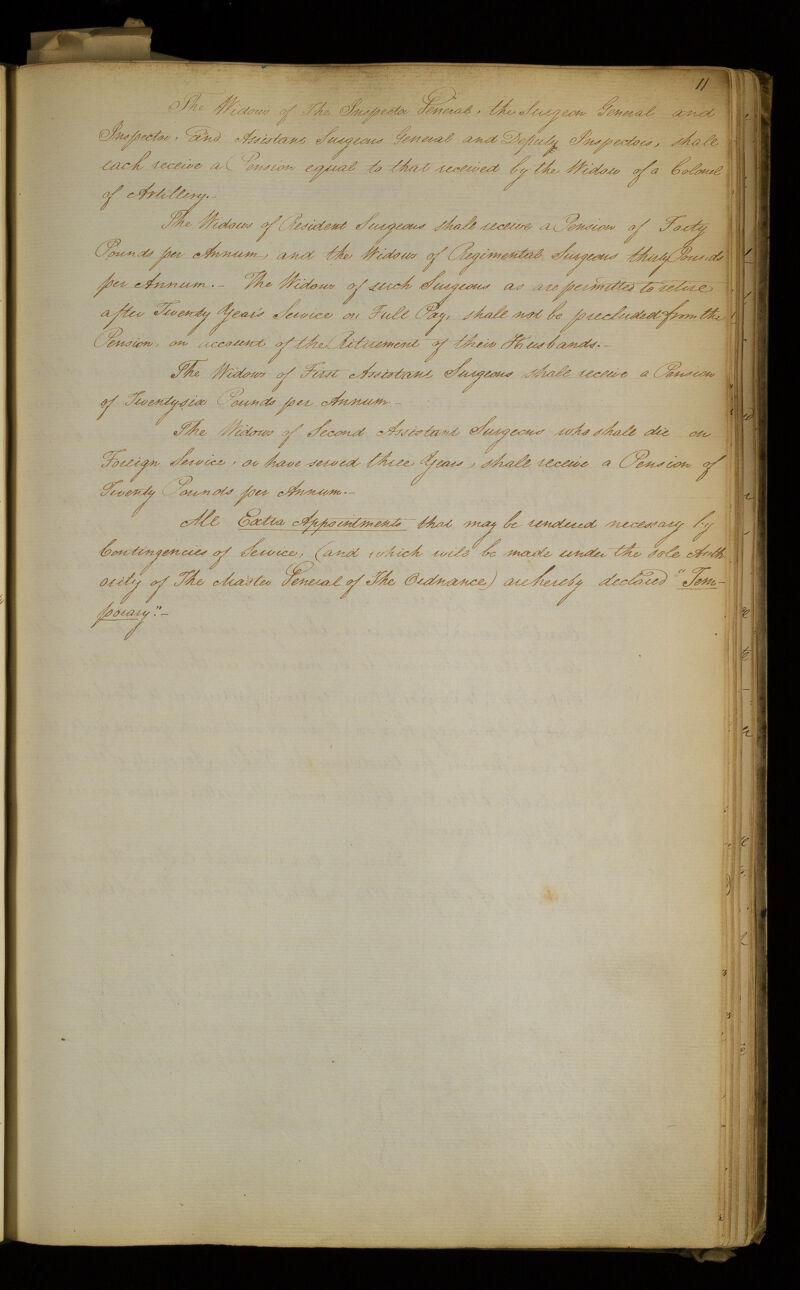 11
The Widows of The Inspector General, the Surgeon General and
Inspector, and Assistant Surgeons General and Deputy Inspectors, shall
each receive a Pension equal to that received by the Widow of a Colonel
of Artillery.-
The Widows of Resident Surgeons shall receive a Pension of Forty
Pounds per Annum, and the Widows of Regimental Surgeons thirty Pounds
per Annum.- The Widows of such Surgeons as are permitted to retire
after Twenty Years Service on Full Pay, shall not be precluded from the
Pension, on account of the Retirement of their Husbands.-
The Widows of First Assistant Surgeons shall receive a Pension
of Twentysix Pounds per Annum-
The Widows of Second Assistant Surgeons who shall die on
Foreign Service, or have served three Years, shall receive a Pension of
Twenty Pounds per Annum.-
All Extra Appointments that may be rendered necessary by
Contingencies of Service, (and which will be made under the sole Auth
ority of The Master General of The Ordnance) are hereby declared "Tem-
porary."-